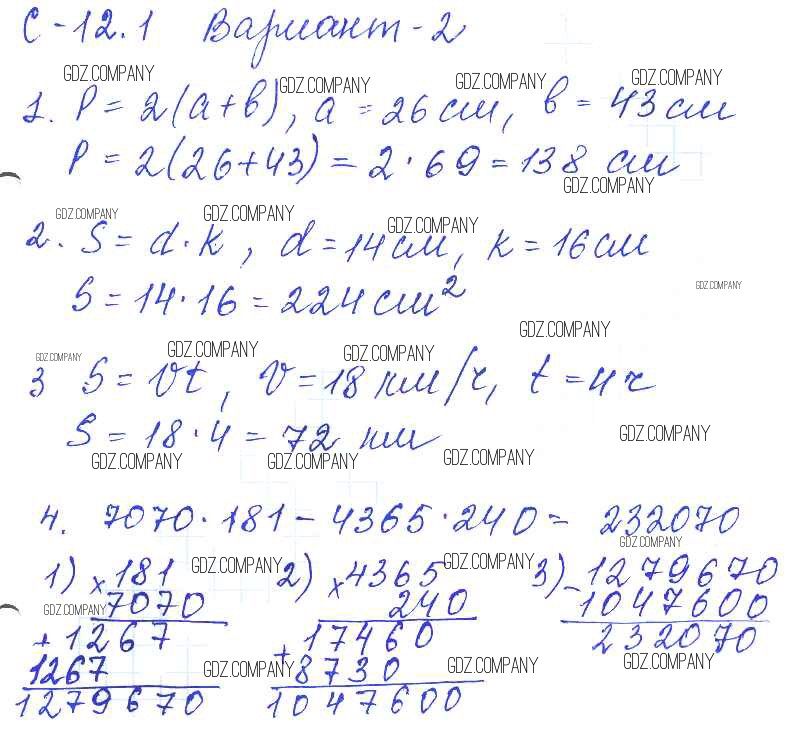 С-12.1 Вариант-2
GDZ.COMPANY GDZ.COMPANY GDZ.COMPANY GDZ.COMPANY
1. P = 2(a+b), a = 26 см, b = 43 см
P = 2(26+43) = 2·69 = 138 см
GDZ.COMPANY
GDZ.COMPANY GDZ.COMPANY GDZ.COMPANY
2. S = d·k, d = 14 см, k = 16 см
S = 14·16 = 224 см²
GDZ.COMPANY
GDZ.COMPANY
GDZ.COMPANY GDZ.COMPANY GDZ.COMPANY
3 S = Vt, V = 18 км/ч, t = 4 ч
S = 18·4 = 72 км
GDZ.COMPANY
GDZ.COMPANY GDZ.COMPANY GDZ.COMPANY
4. 7070·181 - 4365·240 = 232070
GDZ.COMPANY
1) × 181 GDZ.COMPANY 2) × 4365 GDZ.COMPANY 3) - 1279670
GDZ.COMPANY 7070 240 1047600
+ 1267 + 17460 232070
1267 GDZ.COMPANY 8730 GDZ.COMPANY GDZ.COMPANY
1279670 1047600